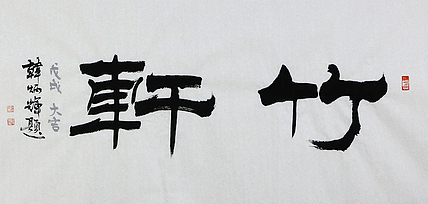 竹軒
戊戌 大吉
韓炳輝題